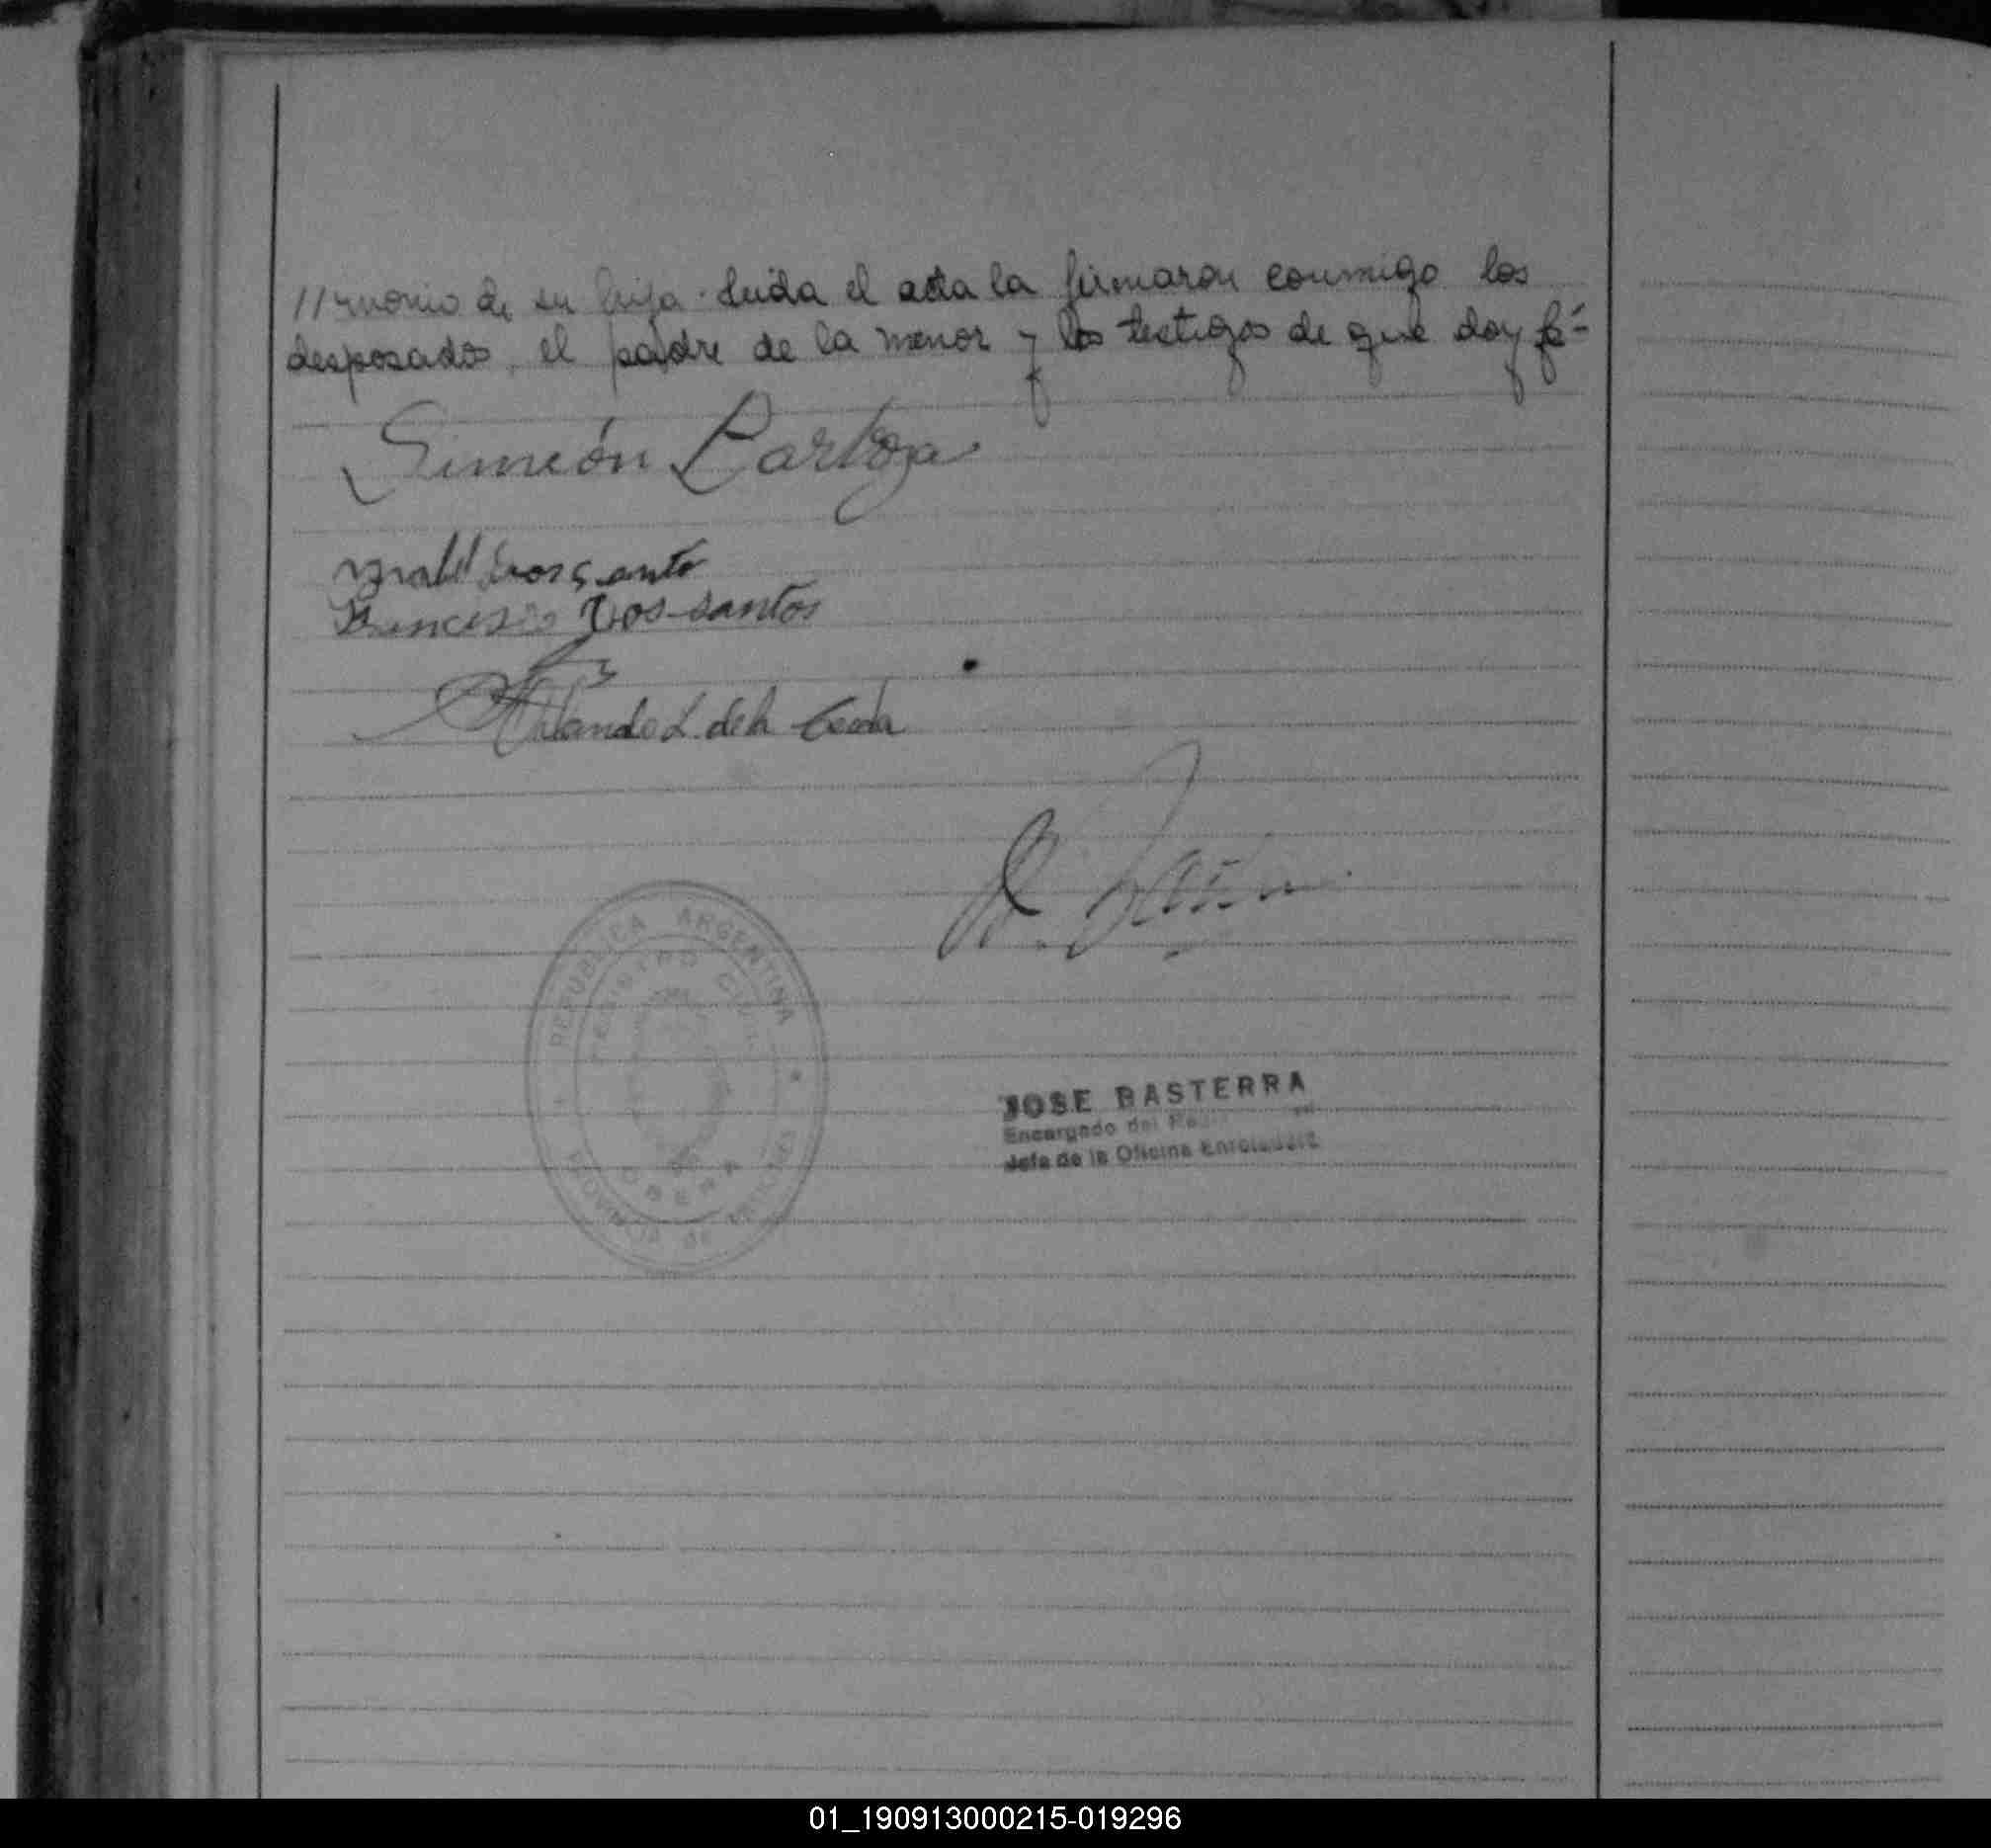 //rmonio de su hija. Leida el acta la firmaron conmigo los
desposados, el padre de la menor y los testigos de que doy fé-
Simeón Barboza
dos santo
Dos-santos
L. de la
REPUBLICA ARGENTINA
REGISTRO CIVIL
OBERA
PROVINCIA DE MISIONES
JOSE BASTERRA
Encargado del
Jefe de la Oficina Enroladora
01_190913000215-019296